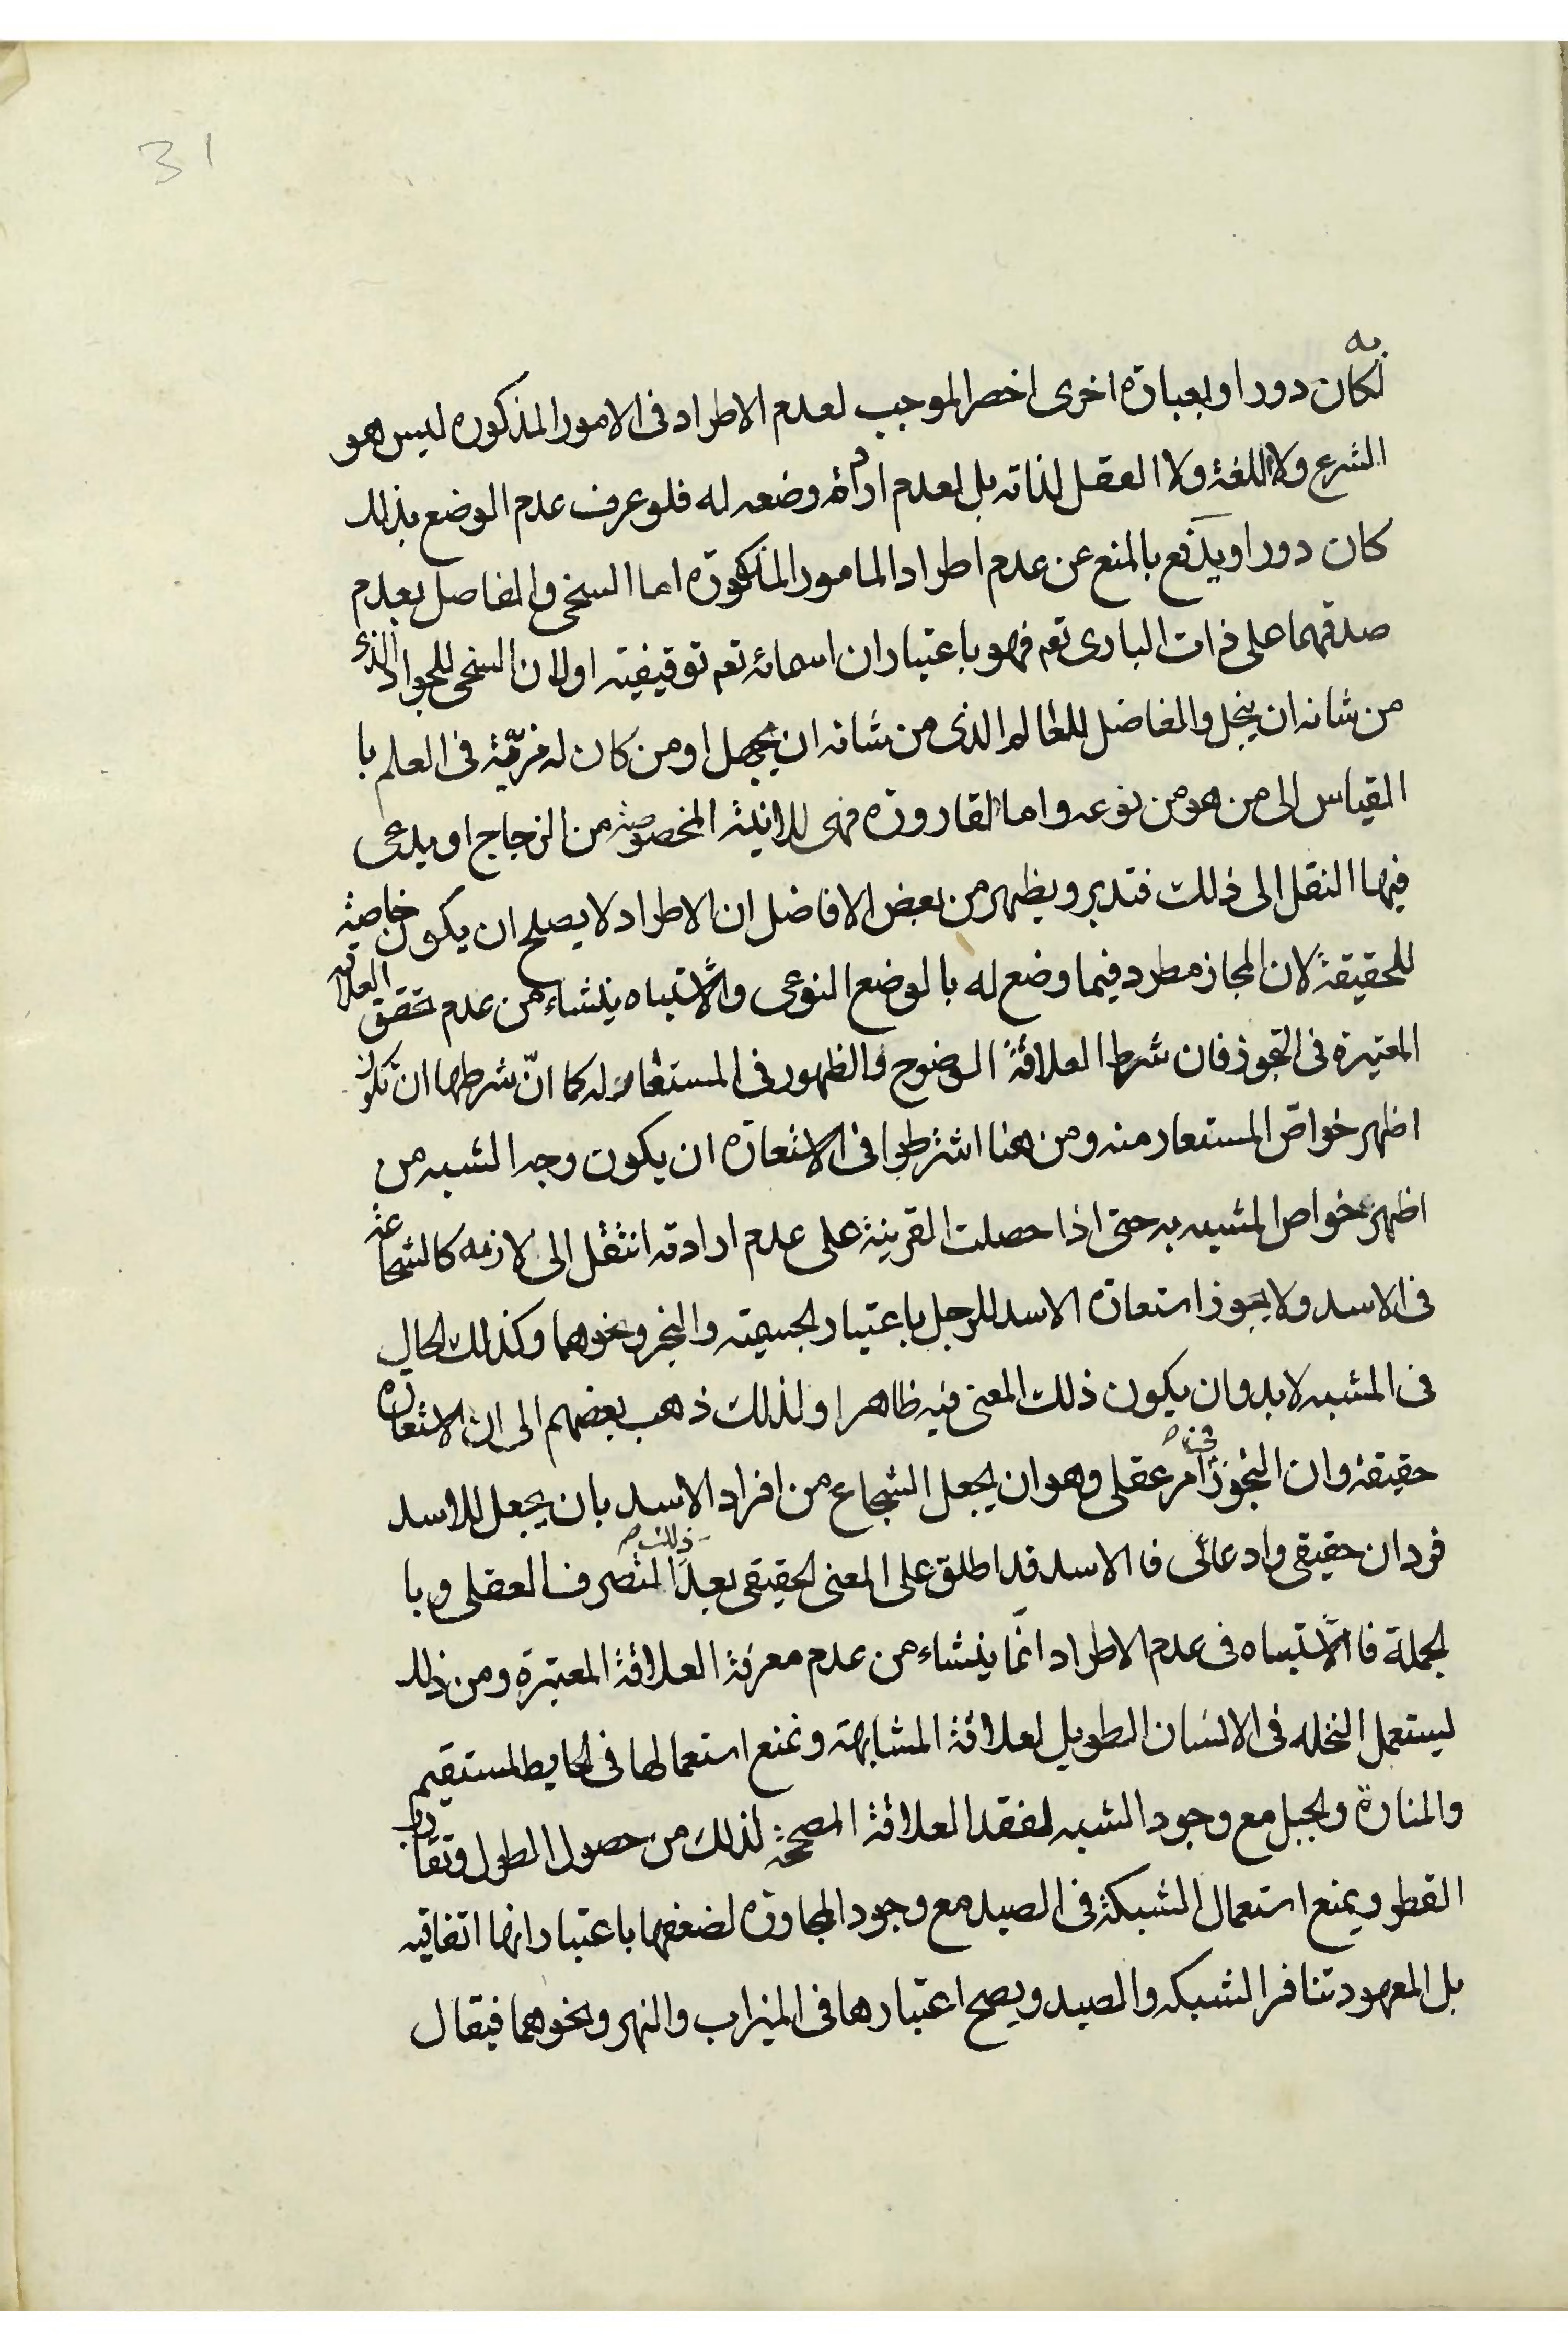 31
به
لكان دورا وبعبارة اخرى اخصر الموجب لعدم الاطراد فى الامور المذكوره ليس هو
الشرع ولا اللغة ولا العقل لذاته بل لعدم ارادة وضعه له فلو عرف عدم الوضع بذلك
كان دورا ويدفع بالمنع عن عدم اطراد المامور المذكورة اما السخى والفاصل بعدم
صدقهما على ذات البارى تعم فهو باعتبار ان اسمائه تعم توقيفيته او لان السخى للجواد الذى
من شانه ان يبخل والفاضل للعالم الذى من شانه ان يجهل او من كان له مزيّة فى العلم با
القياس الى من هو من نوعه واما القارورة فهى للانية المخصوصة من الزجاج او يدعى
فيها النقل الى ذلك فتدبر ويظهر من بعض الافاضل ان الاطراد لا يصلح ان يكون خاصية
للحقيقة لان المجاز مطرد فيما وضع له بالوضع النوعى والاشتباه ينشاء من عدم تحقق العلاقة
المعتبرة فى التجوز فان شرط العلاقة الوضوح والظهور فى المستعار له كما انّ شرطها ان تكون
اظهر خواصّ المستعار منه ومن هنا اشترطوا فى الاستعارة ان يكون وجه الشبه من
اظهر خواص المشبه به حتى اذا حصلت القرينة على عدم ارادته انتقل الى لازمه كالشجاعة
فى الاسد ولا يجوز استعارة الاسد للرجل باعتبار الجسمية والبخر ونحوهما وكذلك الحال
فى المشبه لا بد وان يكون ذلك المعنى فيه ظاهرا ولذلك ذهب بعضهم الى ان الاستعارة
حقيقة وان التجوز فى امر عقلى وهو ان يجعل الشجاع من افراد الاسد بان يجعل للاسد
فردان حقيقى وادعائى فا الاسد قد اطلق على المعنى الحقيقى بعد ذلك التصرف العقلى وبا
لجملة فا الاشتباه فى عدم الاطراد انّما ينشاء من عدم معرفة العلاقة المعتبرة ومن ذلك
ليستعمل النخله فى الانسان الطويل لعلاقة المشابهة ونمنع استعمالها فى الحايط المستقيم
والمنارة والجبل مع وجود الشبه لفقد العلاقة المصححة لذلك من حصول الطول وتقارب
القطر ويمنع استعمال الشبكة فى الصيد مع وجود المجاورة لضعفها باعتبار انها اتفاقيه
بل المعهود تنافر الشبكه والصيد ويصح اعتبارها فى الميزاب والنهر ونحوهما فيقال